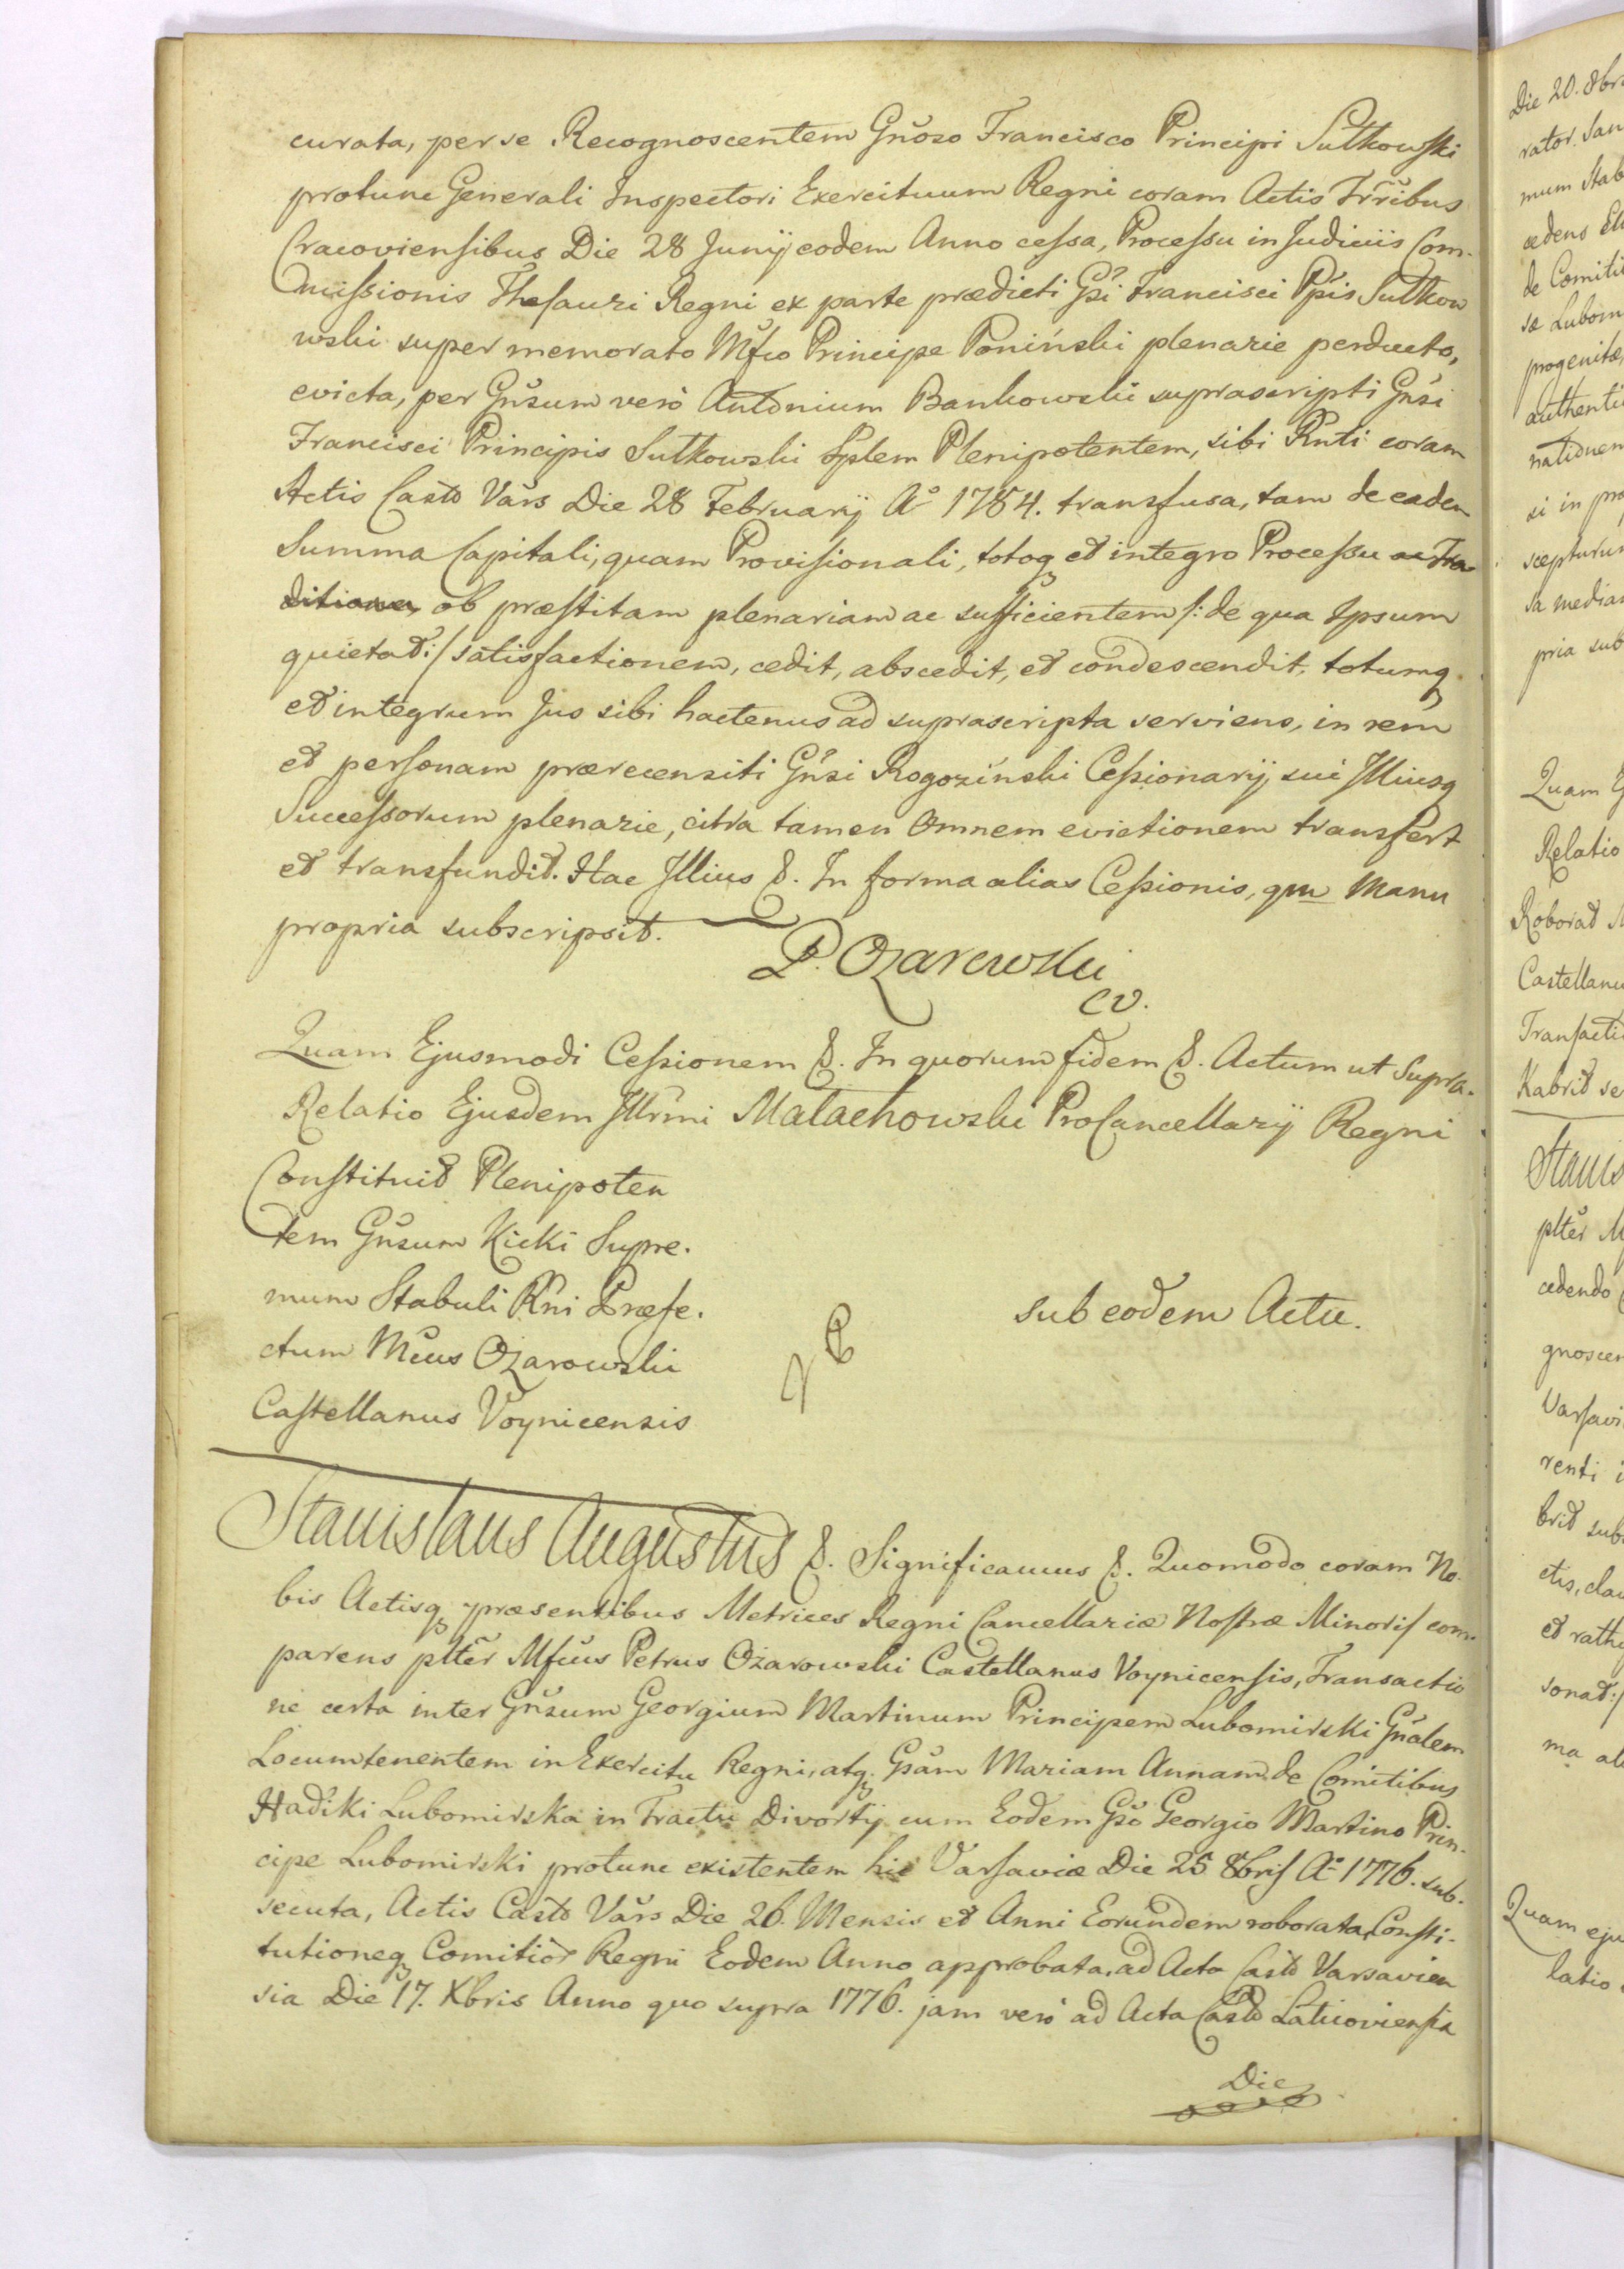 curata, per se Recognoscentem Gnõso Francisco Principi Sułkowski
protunc Generali Inspectori Exercituum Regni coram Actis Trr̃ibus
Cracoviensibus Die 28 Junij eodem Anno cessa, Processu in Judiciis Com-
missionis Thesauri Regni ex parte prædicti Gsi Francisci Ppis Sułkow
wski super memorato Mfco Principe Poniński plenarie perducto,
evicta, per Gñsum verò Antonium Bankowski suprascripti Gñsi
Francisci Principis Sułkowski Splem Plenipotentem, sibi Rñti coram
Actis Castr Vars Die 28 Februarij Aº 1784. transfusa, tam de eadem
Summa Capitali, quam Provisionali, totoq et integro Processu ac Tra
ditione, ob præstitam plenariam ac sufficientem /: de qua Ipsum
quietat :/ satisfactionem, cedit, abscedit, et condescendit, totumq
et integrum Jus sibi hactenus ad suprascripta serviens, in rem
et personam prærecensiti Gñsi Rogoziński Cessionarij sui Illiusq
Successorum plenarie, citra tamen omnem evictionem transfert
et transfundit. Hac Illius &. In forma alias Cessionis, qm Manu
propria subscripsit.
P. Ożarowski
CV.
Quam Ejusmodi Cessionem &. In quorum fidem &. Actum ut Supra.
Relatio Ejusdem Illrmi Małachowski ProCancellarij Regni
Constituit Plenipoten
tem Gñsum Kicki Supre-
mum Stabuli Rñi Præfe-
ctum Mcus Ożarowski
Castellanus Voynicensis
sub eodem Actu.
Stanislaus Augustus &. Significamus &. Quomodo coram No-
bis Actisq præsentibus Metrices Regni Cancellariæ Nostræ Minoris com-
parens plter Mfcus Petrus Ożarowski Castellanus Voynicensis, Transactio
ne certa inter Gñsum Georgium Martinum Principem Lubomirski Gñalem
Locumtenentem in Exercitu Regni, atq Gsam Mariam Annam de Comitibus
Hadiki Lubomirska in Tractu Divortij cum Eodem Gso Georgio Martino Prin-
cipe Lubomirski protunc existentem hic Varsaviæ Die 25 8bris Aº 1776. sub-
secuta, Actis Castr Vars Die 26. Mensis et Anni Eorundem roborata, Consti-
tutioneq Comitior Regni Eodem Anno approbata, ad Acta Castr Varsavien
sia Die 17. Xbris Anno quo supra 1776. jam verò ad Acta Castr Laticoviensia
Die
Die 20. 8br
rator. San
mum Stab
cedens El
de Comiti
sæ Lubom
progenitæ,
authenti
nationem
si in pro
scepturum
sa median
pria sub
Quam E
Relatio
Roborat M
Castellanu
Transacti
Kabrit se
Stanis
plter M
cedendo
gnoscen
Varsavi
renti i
brit sub
ctis, clau
et rath
sonat :/
ma al
Quam eju
latio